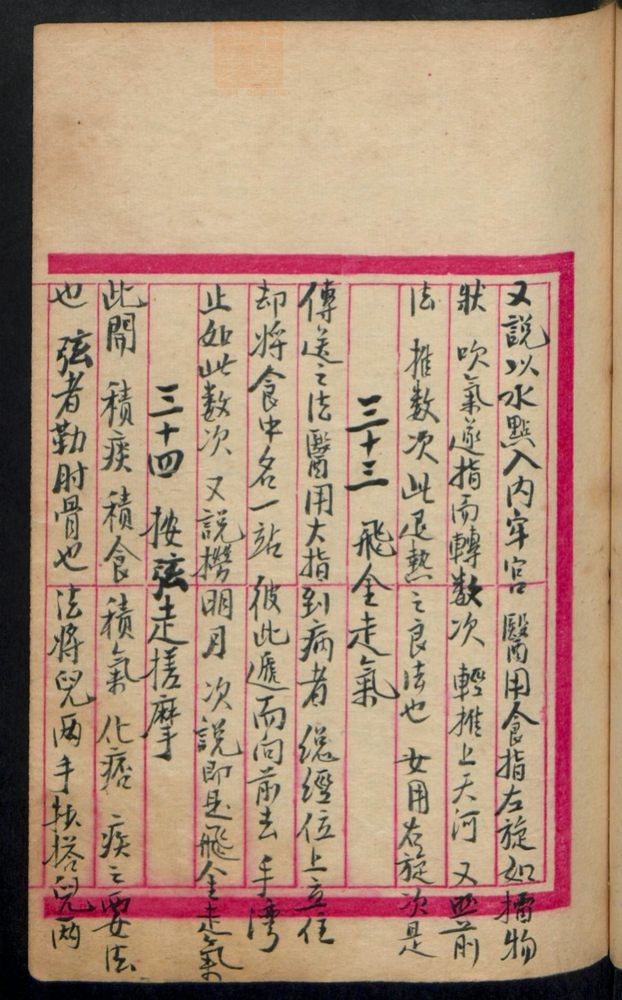 又說以水點入內牢宮 醫用食指左旋如擂物
狀 吹氣遂指而轉數次 輕推上天河 又照前
法 推數次 此退熱之良法也 女用右旋次是
三十三 飛金走氣
傳送之法醫用大指到病者 總經位上立住
却將食中名一站 彼此遞而向前去 手灣
止如此數次 又說撈明月 次說即是飛金走氣
三十四 按弦走搓摩
此開 積痰 積食 積氣 化痞 疾之要法
也 弦者勒肘骨也 法將兒兩手扶搭兒兩